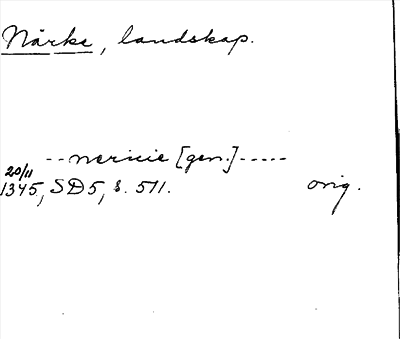 Närke, landskap.
--nericie [gen.]-----
20/11
1345, SD5, s. 511.
orig.